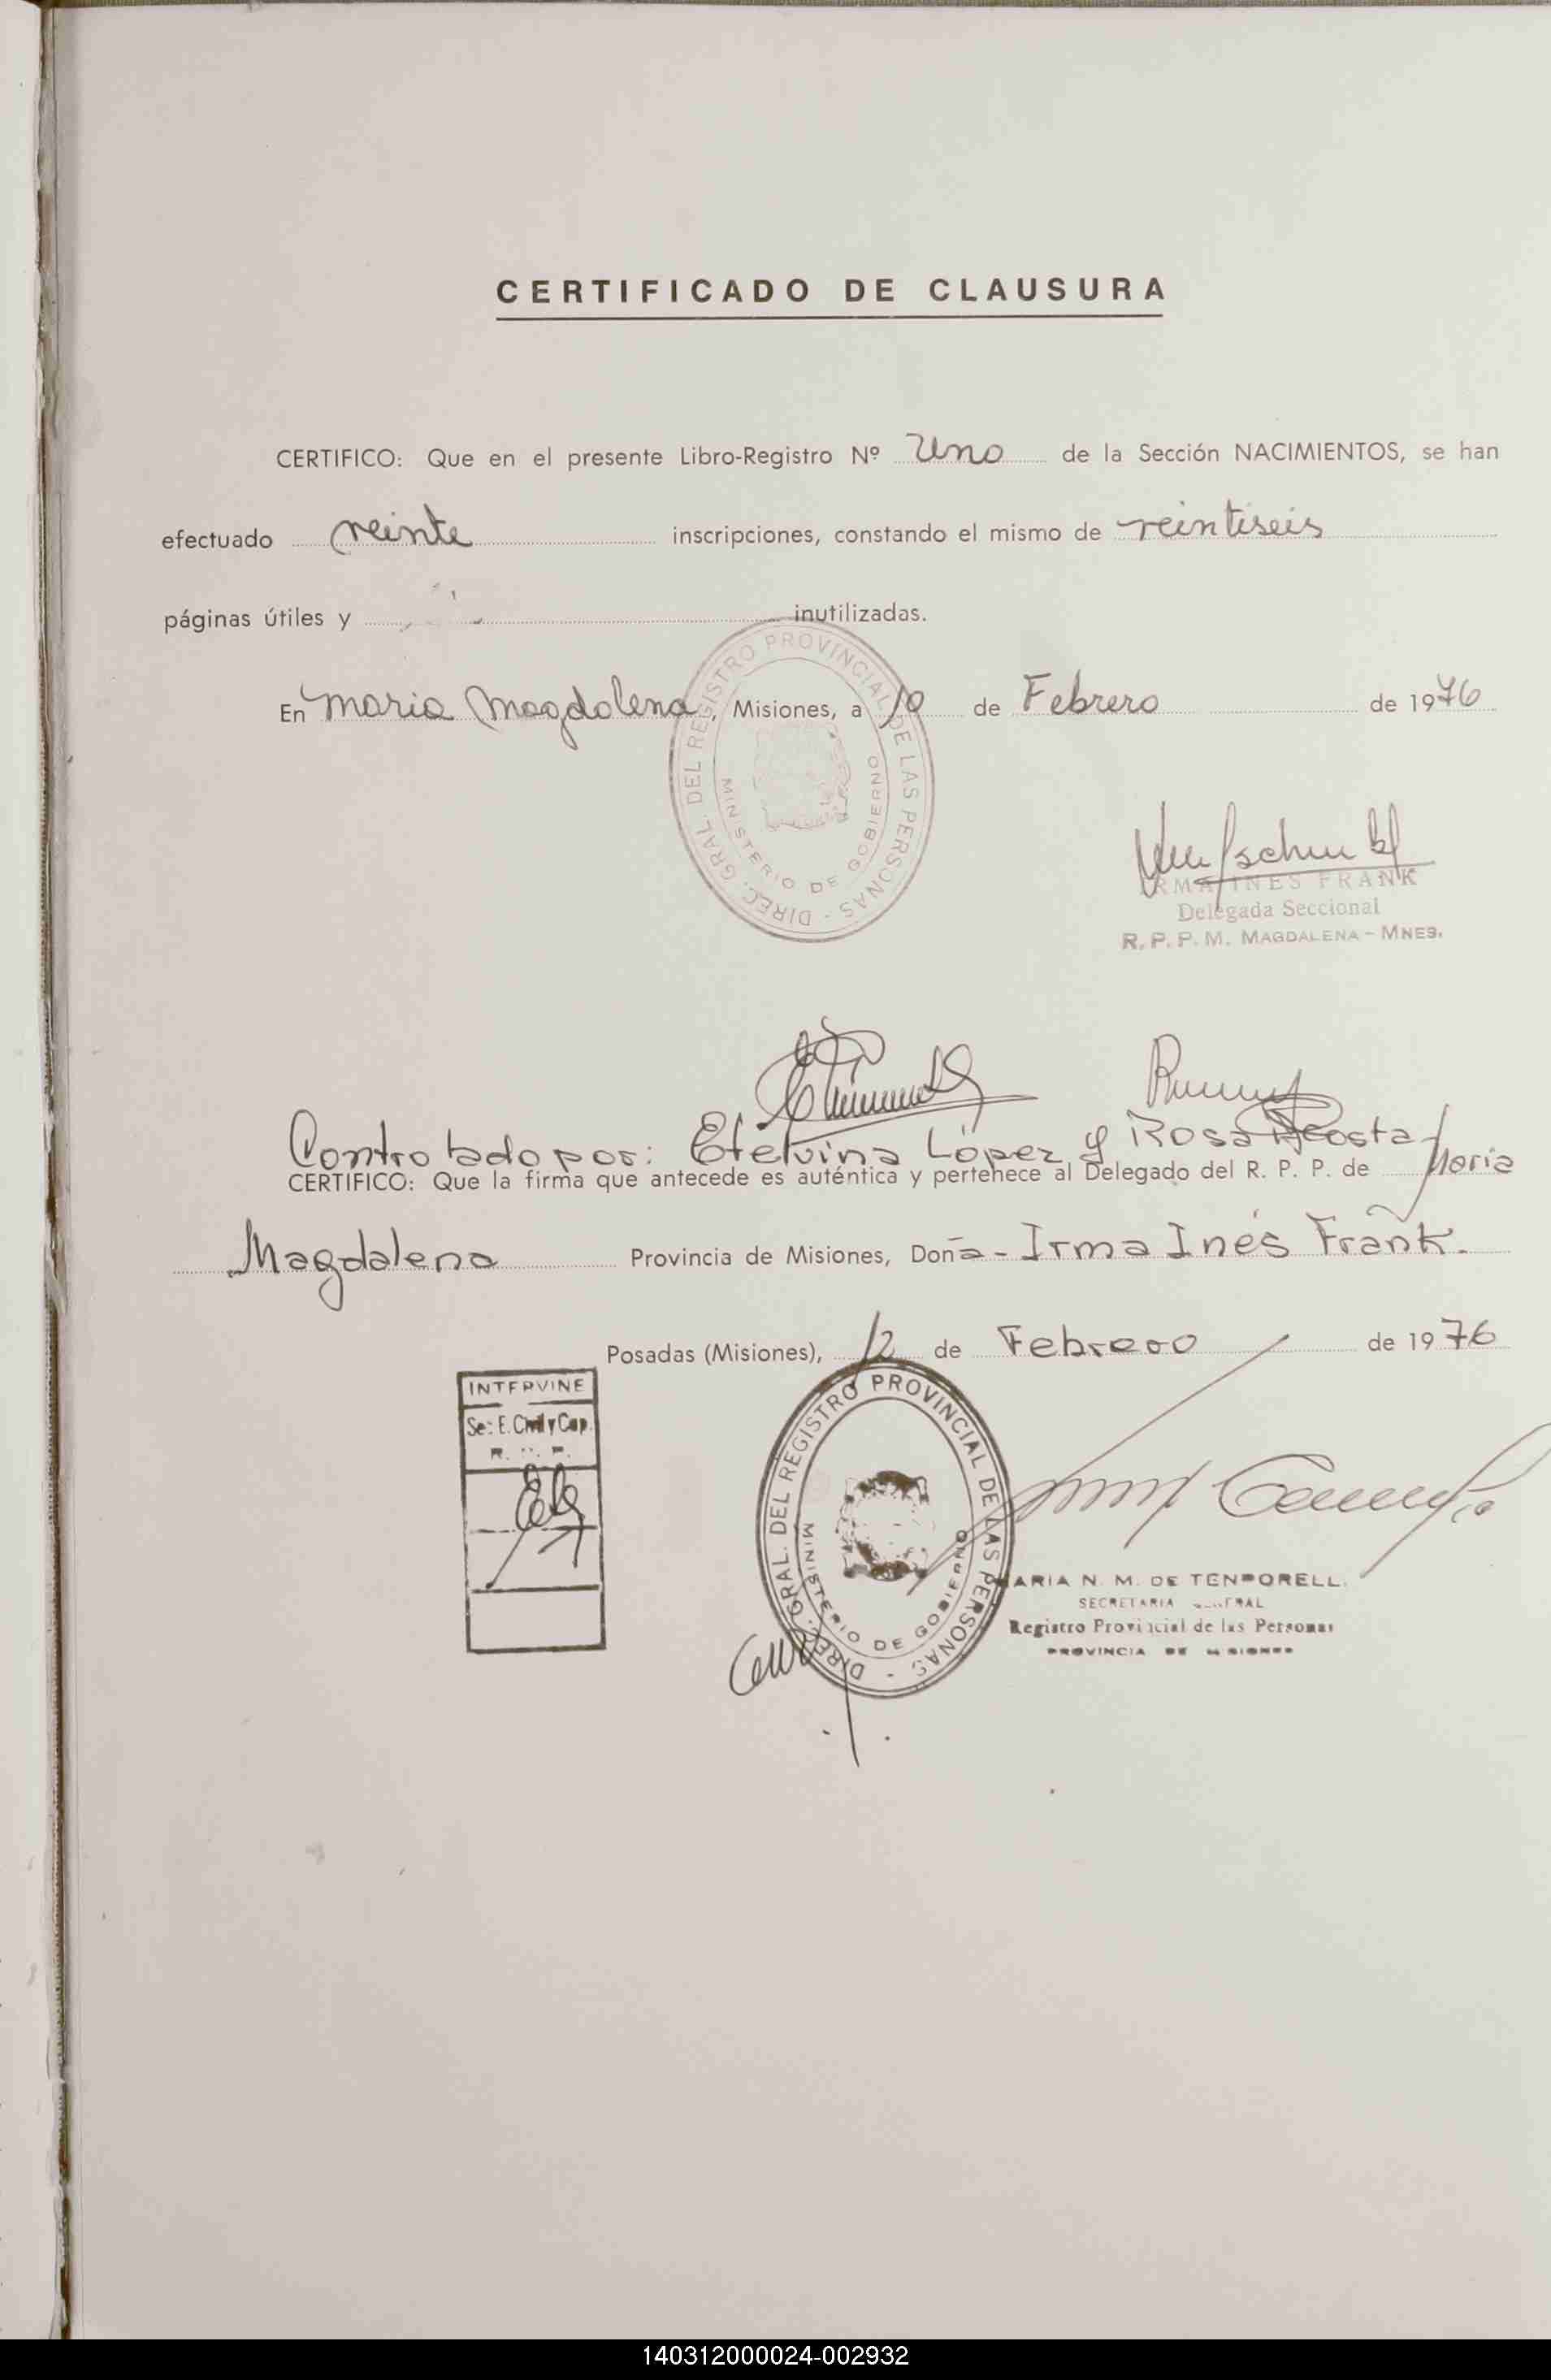 CERTIFICADO DE CLAUSURA
CERTIFICO: Que en el presente Libro-Registro Nº Uno de la Sección NACIMIENTOS, se han
efectuado veinte inscripciones, constando el mismo de veintiseis
páginas útiles y inutilizadas.
En Maria Magdalena, Misiones, a 10 de Febrero de 1976
DIREC. GRAL. DEL REGISTRO PROVINCIAL DE LAS PERSONAS -
MINISTERIO DE GOBIERNO
IRMA INES FRANK
Delegada Seccional
R. P. P. M. MAGDALENA - MNES.
Controlado por: Etelvina López y Rosa Acosta
CERTIFICO: Que la firma que antecede es auténtica y pertenece al Delegado del R. P. P. de Maria
Magdalena Provincia de Misiones, Doña - Irma Inés Frank.
Posadas (Misiones), 12 de Febrero de 1976
INTERVINE
Sec. E. Civil y Cap.
DIREC. GRAL. DEL REGISTRO PROVINCIAL DE LAS PERSONAS -
MINISTERIO DE GOBIERNO
MARIA N. M. DE TEMPORELLI
SECRETARIA GENERAL
Registro Provincial de las Personas
PROVINCIA DE MISIONES
140312000024-002932